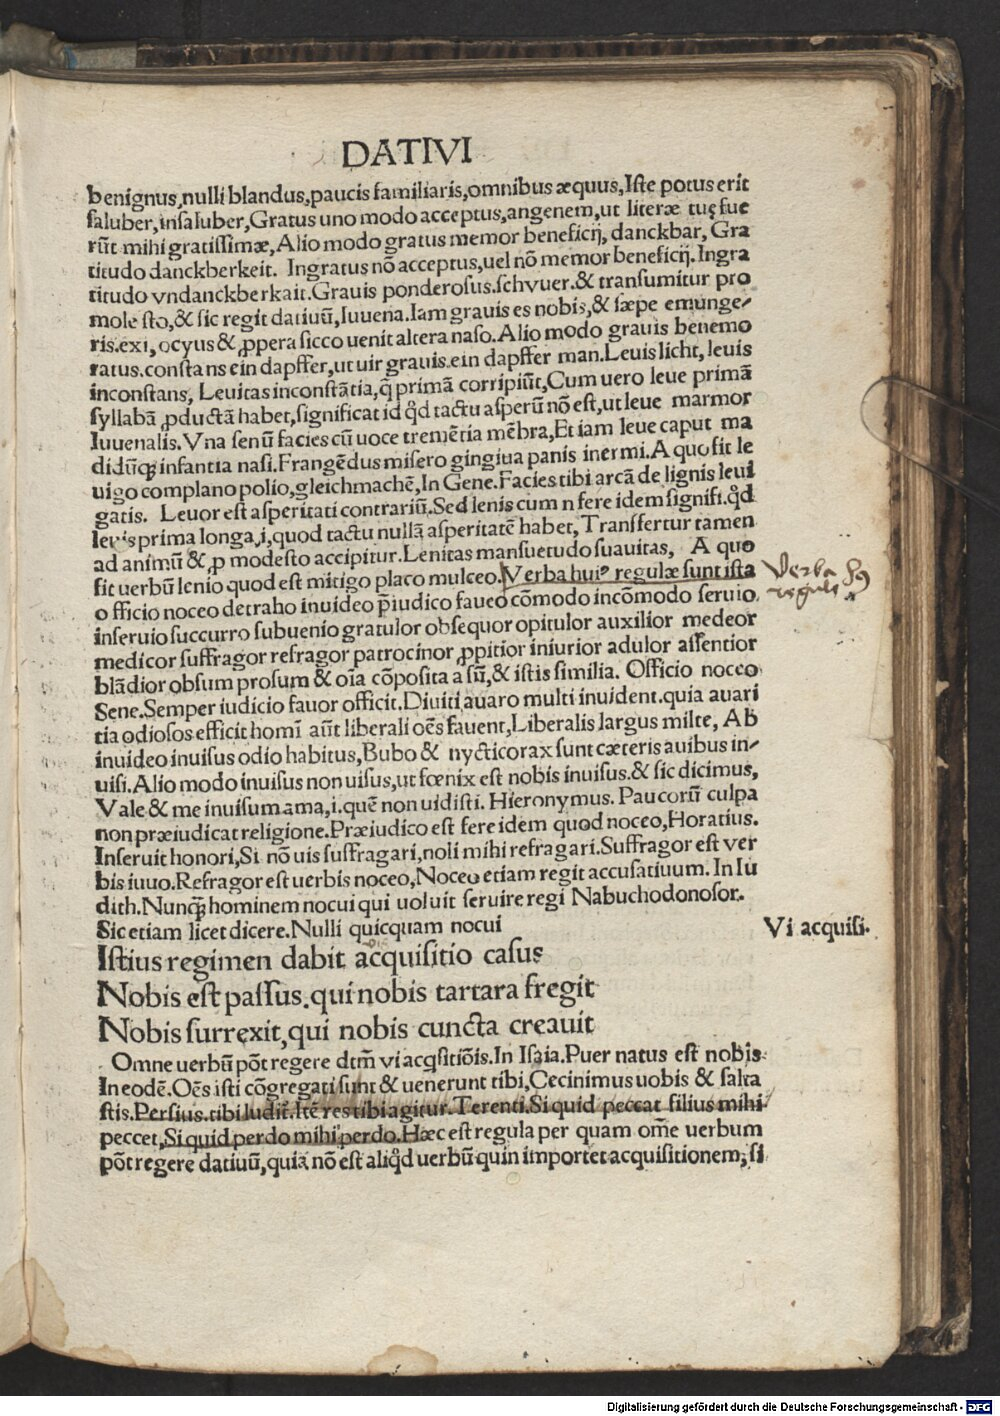 DATIVI
benignus,nulli blandus,paucis familiaris,omnibus æquus,Iſte potus erit
ſaluber,inſaluber,Gratus uno modo acceptus,angenem,ut literæ tuę fue
rũt mihi gratiſſimæ,Alio modo gratus memor beneficij, danckbar, Gra
titudo danckberkeit. Ingratus nõ acceptus,uel nõ memor beneficij.Ingra
titudo vndanckberkait.Grauis ponderoſus.ſchvuer.& tranſumitur pro
moleſto,& ſic regit datiuũ,Iuuena.Iam grauis es nobis,& ſæpe emunge⸗
ris.exi,ocyus & ꝓpera ſicco uenit altera naſo.Alio modo grauis bene mo
ratus.conſtans ein dapffer,ut uir grauis.ein dapffer man.Leuis licht, leuis
inconſtans, Leuitas inconſtãtia,q̃ primã corripiũt,Cum uero leue primã
ſyllabã ꝓductã habet,ſignificat id q̊d tactu aſperũ nõ eſt,ut leue marmor
Iuuenalis.Vna ſenũ facies cũ uoce tremẽtia mẽbra,Et iam leue caput ma
didũq; infantia naſi.Frangẽdus miſero gingiua panis inermi.A quo fit le
uigo complano polio,gleichmachẽ,In Gene.Facies tibi arcã de lignis leui
gatis. Leuor eſt aſperitati contrariũ.Sed lenis cum n fere idem ſignifi.q̊d
leuis prima longa,i,quod tactu nullã aſperitatẽ habet, Tranſfertur tamen
ad animũ & ꝓ modeſto accipitur.Lenitas manſuetudo ſuauitas, A quo
fit uerbũ lenio quod eſt mitigo placo mulceo.Verba huiꝰ regulæ ſunt iſta
Verba
regule
officio noceo detraho inuideo p̃iudico faueo cõmodo incõmodo ſeruio
inſeruio ſuccurro ſubuenio gratulor obſequor opitulor auxilior medeor
medicor ſuffragor refragor patrocinor ꝓpitior iniurior adulor aſſentior
blãdior obſum proſum & oĩa cõpoſita a ſũ,& iſtis ſimilia. Officio noceo
Sene.Semper iudicio fauor officit.Diuiti auaro multi inuident.quia auari
tia odioſos efficit homĩ aũt liberali oẽs fauent,Liberalis largus milte, Ab
inuideo inuiſus odio habitus,Bubo & nycticorax ſunt cæteris auibus in⸗
uiſi.Alio modo inuiſus non uiſus,ut fœnix eſt nobis inuiſus.& ſic dicimus,
Vale & me inuiſum ama,i.quẽ non uidiſti. Hieronymus. Paucorũ culpa
non præiudicat religione.Præiudico eſt fere idem quod noceo,Horatius.
Inſeruit honori,Si nõ uis ſuffragari,noli mihi refragari.Suffragor eſt ver
bis iuuo.Refragor eſt uerbis noceo,Noceo etiam regit accuſatiuum. In Iu
dith.Nunq̃ hominem nocui qui uoluit ſeruire regi Nabuchodonoſor.
Sic etiam licet dicere.Nulli quicquam nocui
Vi acquiſi.
Iſtius regimen dabit acquiſitio caſus
Nobis eſt paſſus.qui nobis tartara fregit
Nobis ſurrexit,qui nobis cuncta creauit
Omne uerbũ põt regere dtm̃ vi acq̇ſitiõis.In Iſaia.Puer natus eſt nobis.
In eodẽ.Oẽs iſti cõgregati ſunt & uenerunt tibi,Cecinimus uobis & ſalta
ſtis.Perſius.tibi luditr̃.Itẽ res tibi agitur.Terenti.Si quid peccat filius mihi
peccet,Si quid perdo mihi perdo.Hæc eſt regula per quam om̃e uerbum
põt regere datiuũ,quia nõ eſt aliq̊d uerbũ quin importet acquiſitionem; ſi
Digitalisierung gefördert durch die Deutsche Forschungsgemeinschaft - DFG